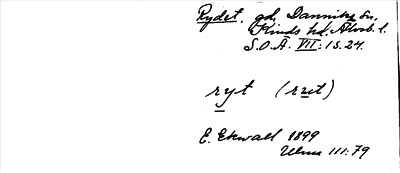 Rydet, gd, Dannike sn,
Kinds hd, Älvsb. l.
S.O.Ä. VII:1 s. 24.
ryt (rʉt)
E. Ekwall 1899
Ulma 111:79